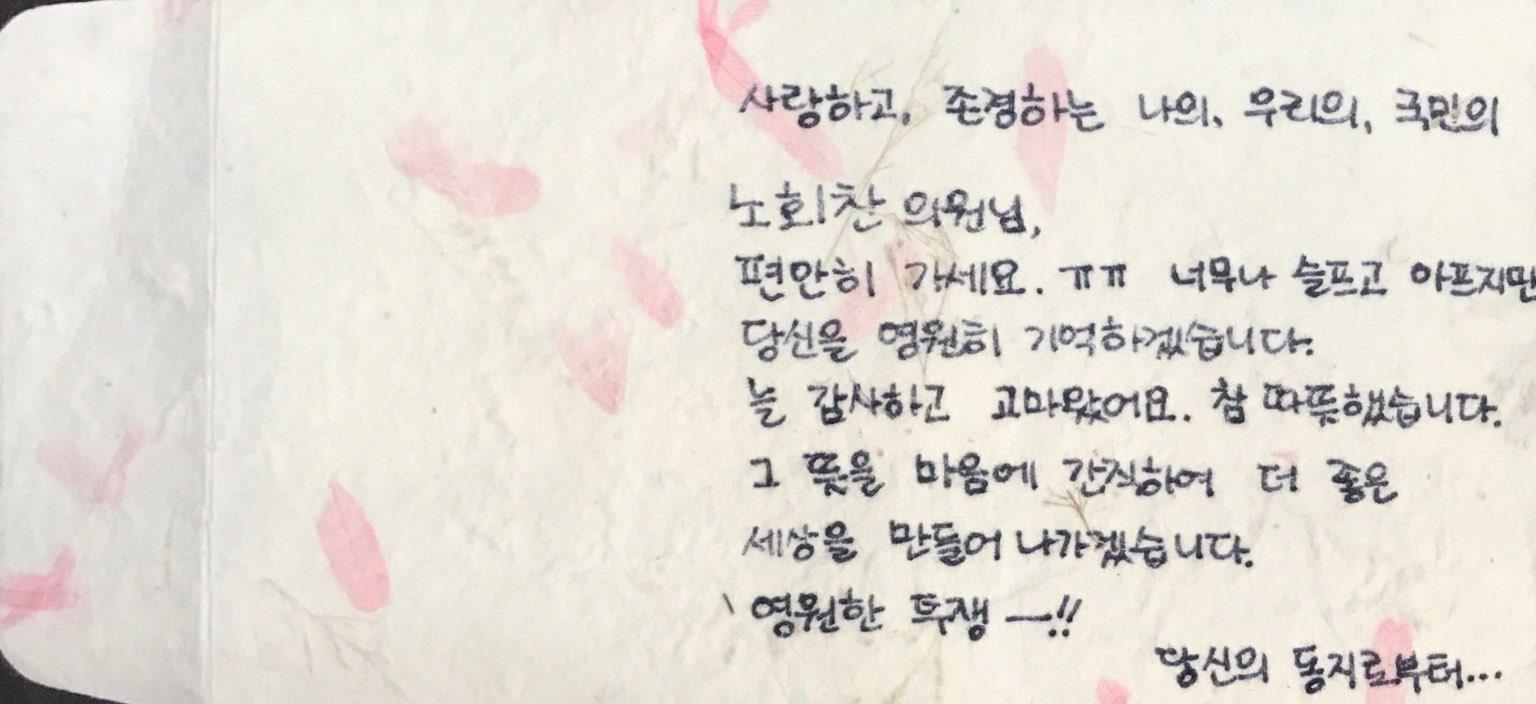 사랑하고, 존경하는 나의, 우리의, 국민의
노회찬 의원님,
편안히 가세요. ㅠㅠ 너무나 슬프고 아프지만
당신을 영원히 기억하겠습니다.
늘 감사하고 고마왔어요. 참 따뜻했습니다.
그 뜻을 마음에 간직하여 더 좋은
세상을 만들어 나가겠습니다.
영원한 투쟁 —!!
당신의 동지로부터...